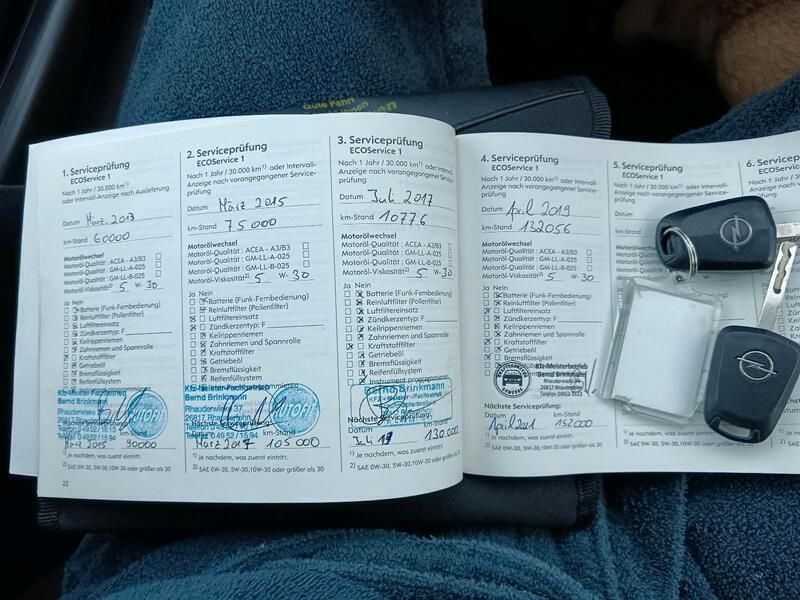 Gute Fahrt
1. Serviceprüfung
ECOService 1
Nach 1 Jahr / 30.000 km¹⁾
oder Intervall-Anzeige nach Auslieferung
Datum März 2013
km-Stand 60000
Motorölwechsel
Motoröl-Qualität : ACEA - A3/B3
Motoröl-Qualität : GM-LL-A-025
Motoröl-Qualität : GM-LL-B-025
Motoröl-Viskosität²⁾ 5 W- 30
Ja Nein
Batterie (Funk-Fernbedienung)
Reinluftfilter (Pollenfilter)
Luftfiltereinsatz
Zündkerzentyp: F
Keilrippenriemen
Zahnriemen und Spannrolle
Kraftstofffilter
Getriebeöl
Bremsflüssigkeit
Reifenfüllsystem
Kfz-Meister-Fachbetrieb
Bernd Brinkmann
Rhauderwieke
26817 Rhauderfehn
Telefon 04952/1594
autofit
März 2015 90000
1) Je nachdem, was zuerst eintrifft.
2) SAE 0W-30, 5W-30,10W-30 oder größer als 30
22
2. Serviceprüfung
ECOService 1
Nach 1 Jahr / 30.000 km¹⁾ oder Intervall-
Anzeige nach vorangegangener Service-
prüfung
Datum März 2015
km-Stand 75000
Motorölwechsel
Motoröl-Qualität : ACEA - A3/B3
Motoröl-Qualität : GM-LL-A-025
Motoröl-Qualität : GM-LL-B-025
Motoröl-Viskosität²⁾ 5 W- 30
Ja Nein
Batterie (Funk-Fernbedienung)
Reinluftfilter (Pollenfilter)
Luftfiltereinsatz
Zündkerzentyp: F
Keilrippenriemen
Zahnriemen und Spannrolle
Kraftstofffilter
Getriebeöl
Bremsflüssigkeit
Reifenfüllsystem
Kfz-Meister-Fachbetrieb
Bernd Brinkmann
Rhauderwieke 37
26817 Rhauderfehn
Telefon 04952/1594
autofit
März 2017 105000
1) Je nachdem, was zuerst eintrifft.
2) SAE 0W-30, 5W-30,10W-30 oder größer als 30
3. Serviceprüfung
ECOService 1
Nach 1 Jahr / 30.000 km¹⁾ oder Intervall-
Anzeige nach vorangegangener Service-
prüfung
Datum Juli 2017
km-Stand 10776
Motorölwechsel
Motoröl-Qualität : ACEA - A3/B3
Motoröl-Qualität : GM-LL-A-025
Motoröl-Qualität : GM-LL-B-025
Motoröl-Viskosität²⁾ 5 W- 30
Ja Nein
Batterie (Funk-Fernbedienung)
Reinluftfilter (Pollenfilter)
Luftfiltereinsatz
Zündkerzentyp: F
Keilrippenriemen
Zahnriemen und Spannrolle
Kraftstofffilter
Getriebeöl
Bremsflüssigkeit
Reifenfüllsystem
Instrument programmieren
Bernd Brinkmann
Nächste Serviceprüfung:
Datum km-Stand
Juli 19 130000
1) Je nachdem, was zuerst eintrifft.
2) SAE 0W-30, 5W-30,10W-30 oder größer als 30
4. Serviceprüfung
ECOService 1
Nach 1 Jahr / 30.000 km¹⁾ oder Intervall-
Anzeige nach vorangegangener Service-
prüfung
Datum April 2019
km-Stand 132056
Motorölwechsel
Motoröl-Qualität : ACEA - A3/B3
Motoröl-Qualität : GM-LL-A-025
Motoröl-Qualität : GM-LL-B-025
Motoröl-Viskosität²⁾ 5 W- 30
Ja Nein
Batterie (Funk-Fernbedienung)
Reinluftfilter (Pollenfilter)
Luftfiltereinsatz
Zündkerzentyp: F
Keilrippenriemen
Zahnriemen und Spannrolle
Kraftstofffilter
Getriebeöl
Bremsflüssigkeit
Kfz-Meisterbetrieb
Bernd Brinkmann
26817 Rhauderfehn
Nächste Serviceprüfung:
Datum km-Stand
April 2021 152000
1) Je nachdem, was zuerst eintrifft.
2) SAE 0W-30, 5W-30,10W-30 oder größer als 30
5. Serviceprüfung
ECOService 1
Nach 1 Jahr / 30.000 km¹⁾ oder Intervall-
Anzeige nach vorangegangener Service-
prüfung
6. Servicep
ECOServ